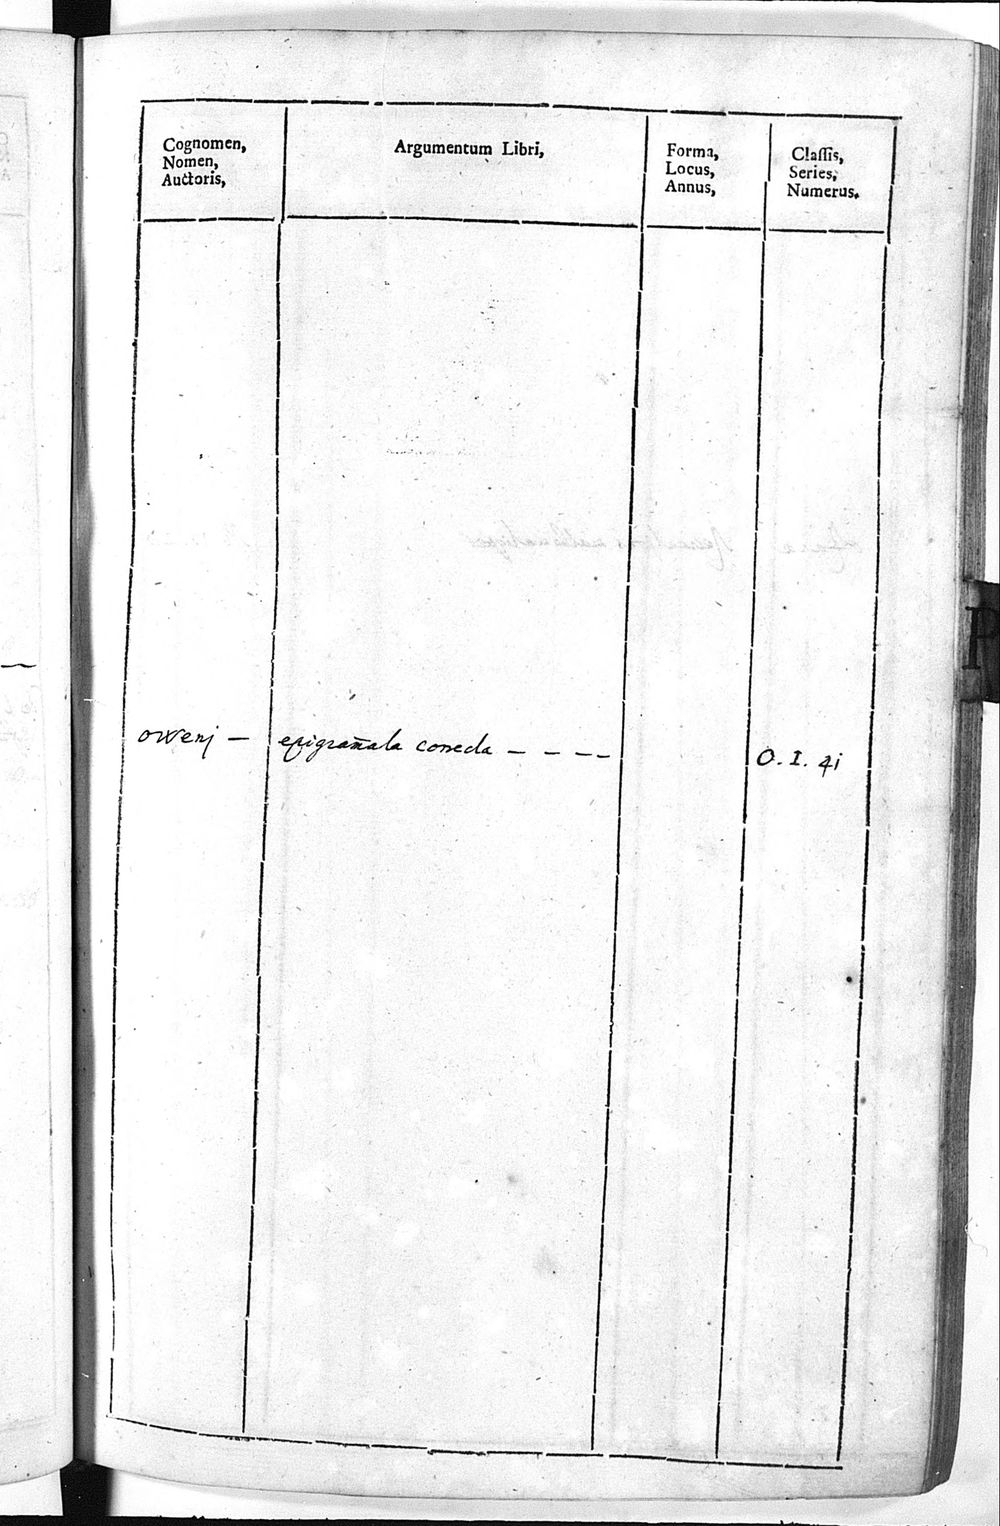 Cognomen,
Nomen,
Auctoris,
Argumentum Libri,
Forma,
Locus,
Annus,
Classis,
Series,
Numerus.
owenj — epigram̄ata correcta – – – – O. I. 41
P